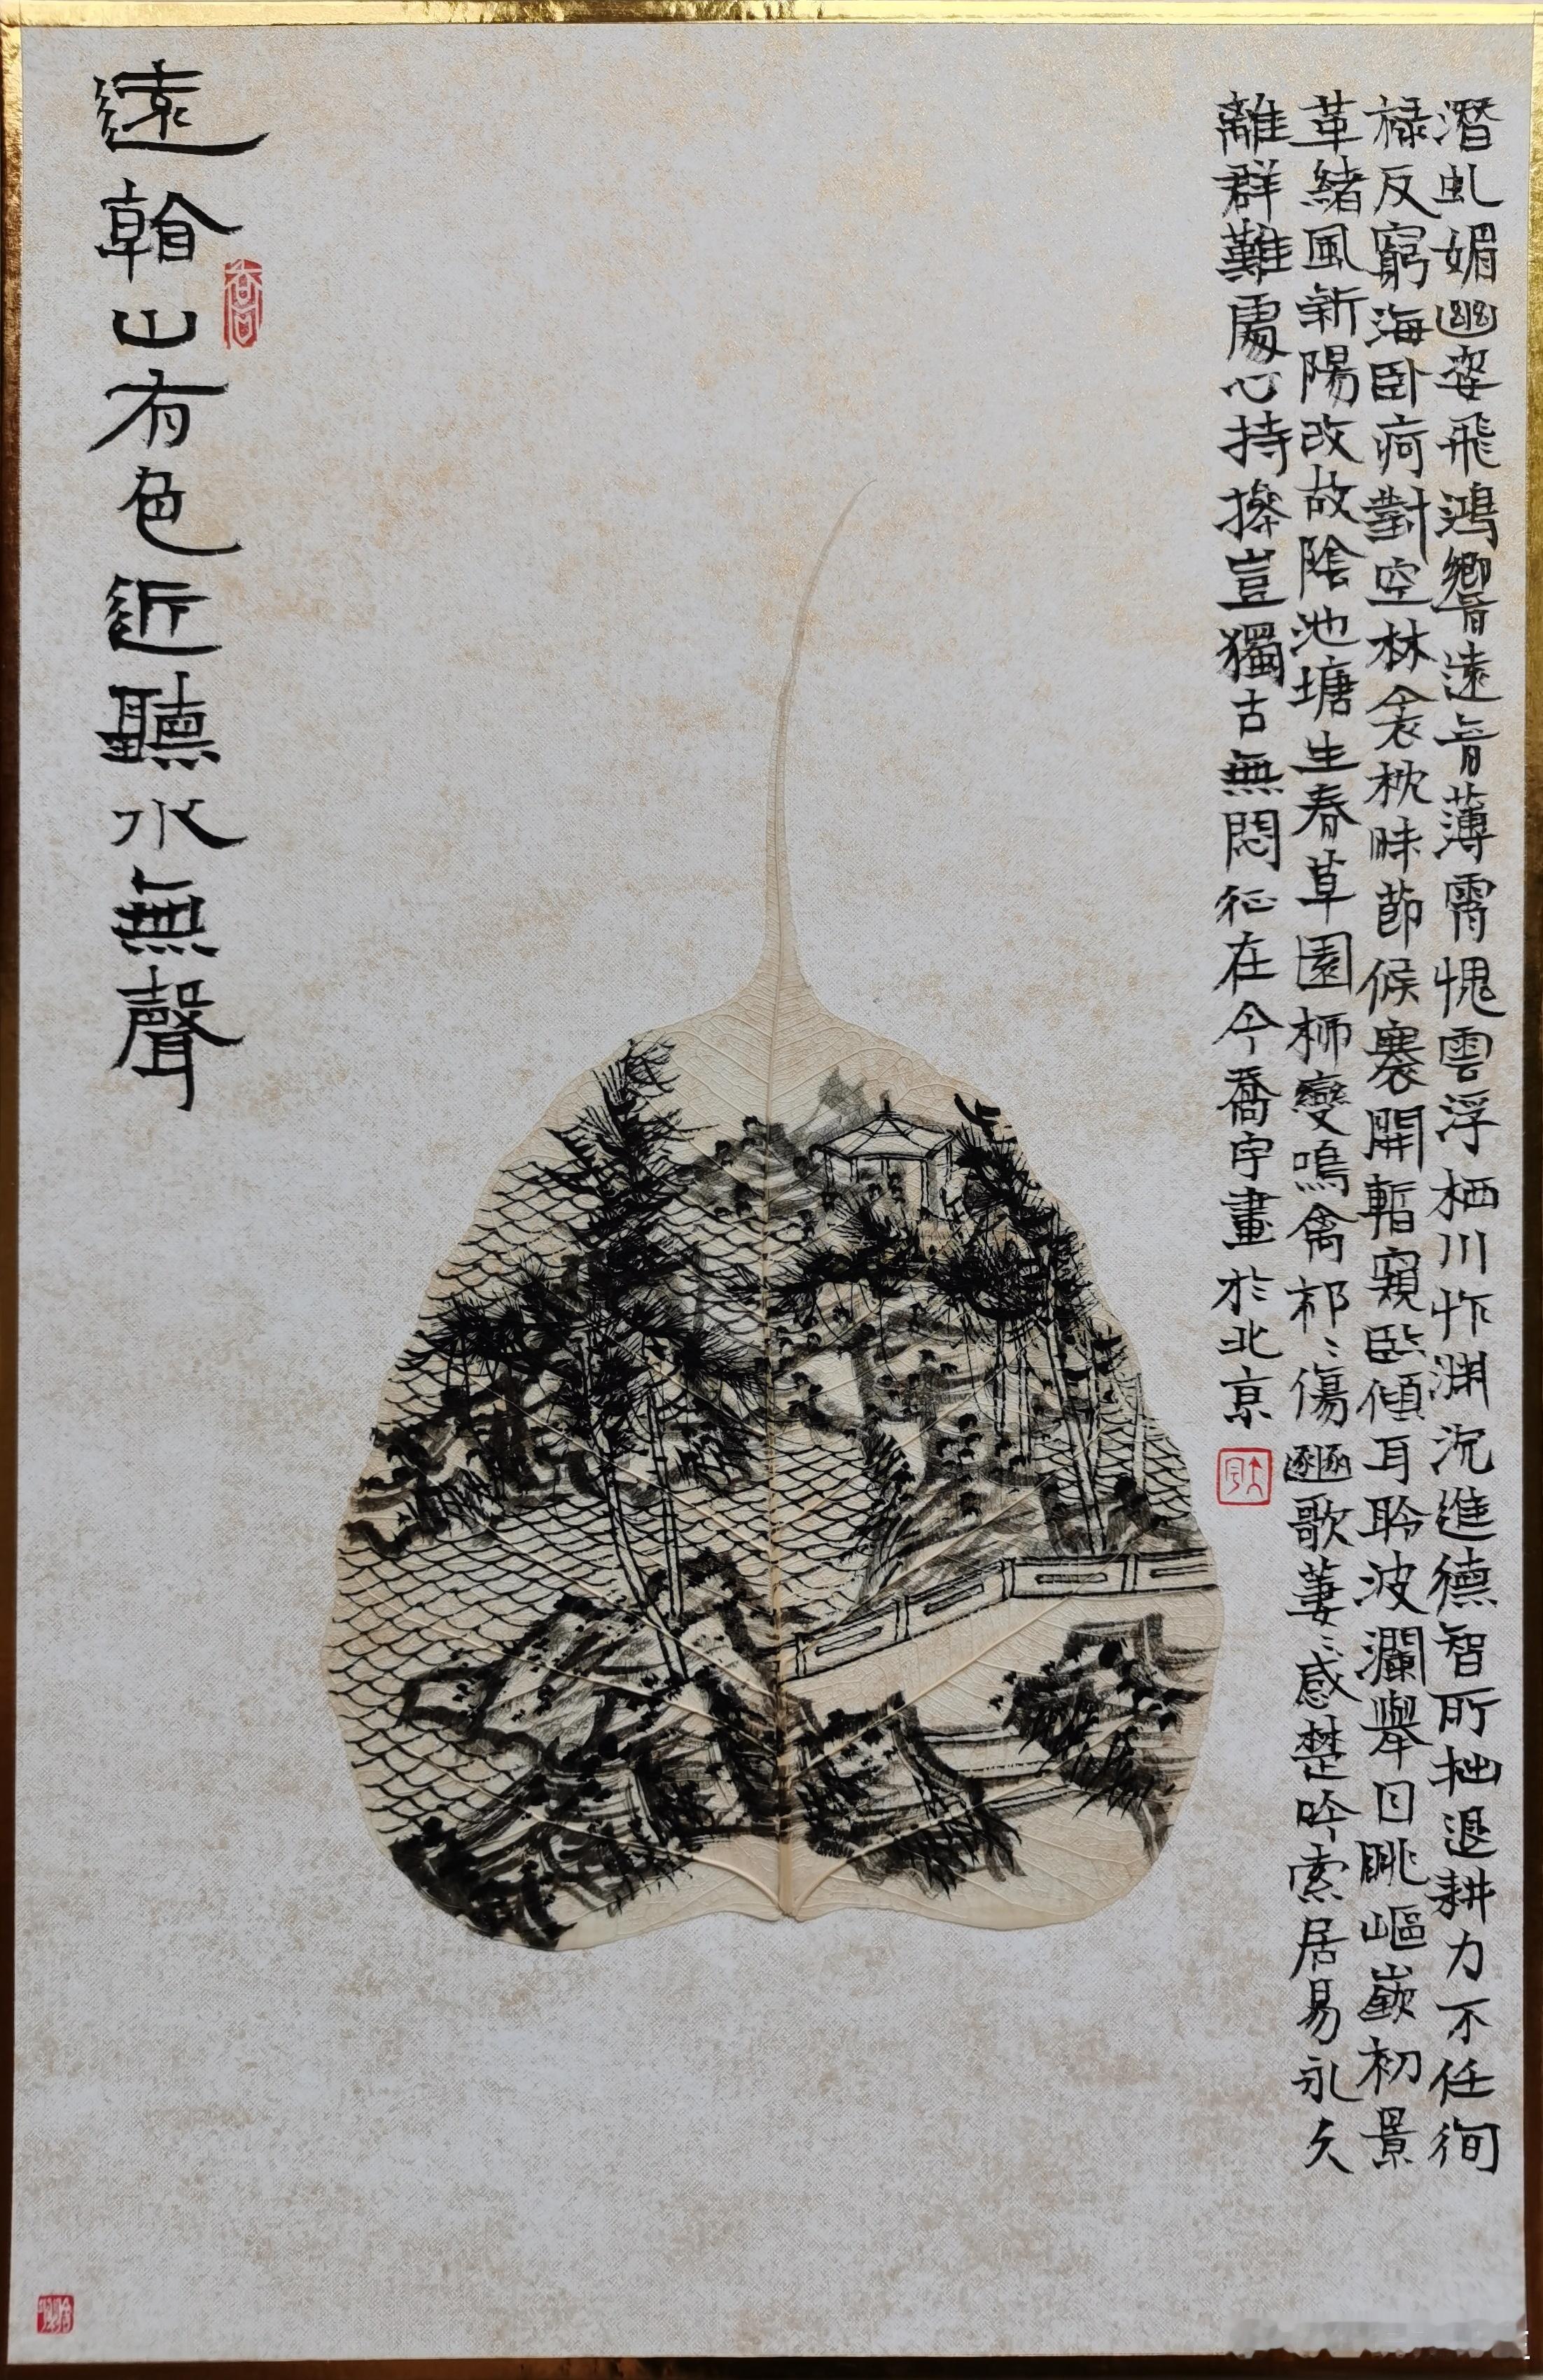 潛虬媚幽姿飛鴻響遠音薄霄愧雲浮栖川怍渊沉進德智所拙退耕力不任徇
禄反窮海卧痾對空林衾枕昧節候褰開暫窺臨傾耳聆波瀾舉目眺嶇嶔初景
革緒風新陽改故陰池塘生春草園柳變鳴禽祁〻傷豳歌萋〻感楚吟索居易永久
離群難處心持操豈獨古無悶征在今喬宇畫於北京
遠看山有色近聽水無聲